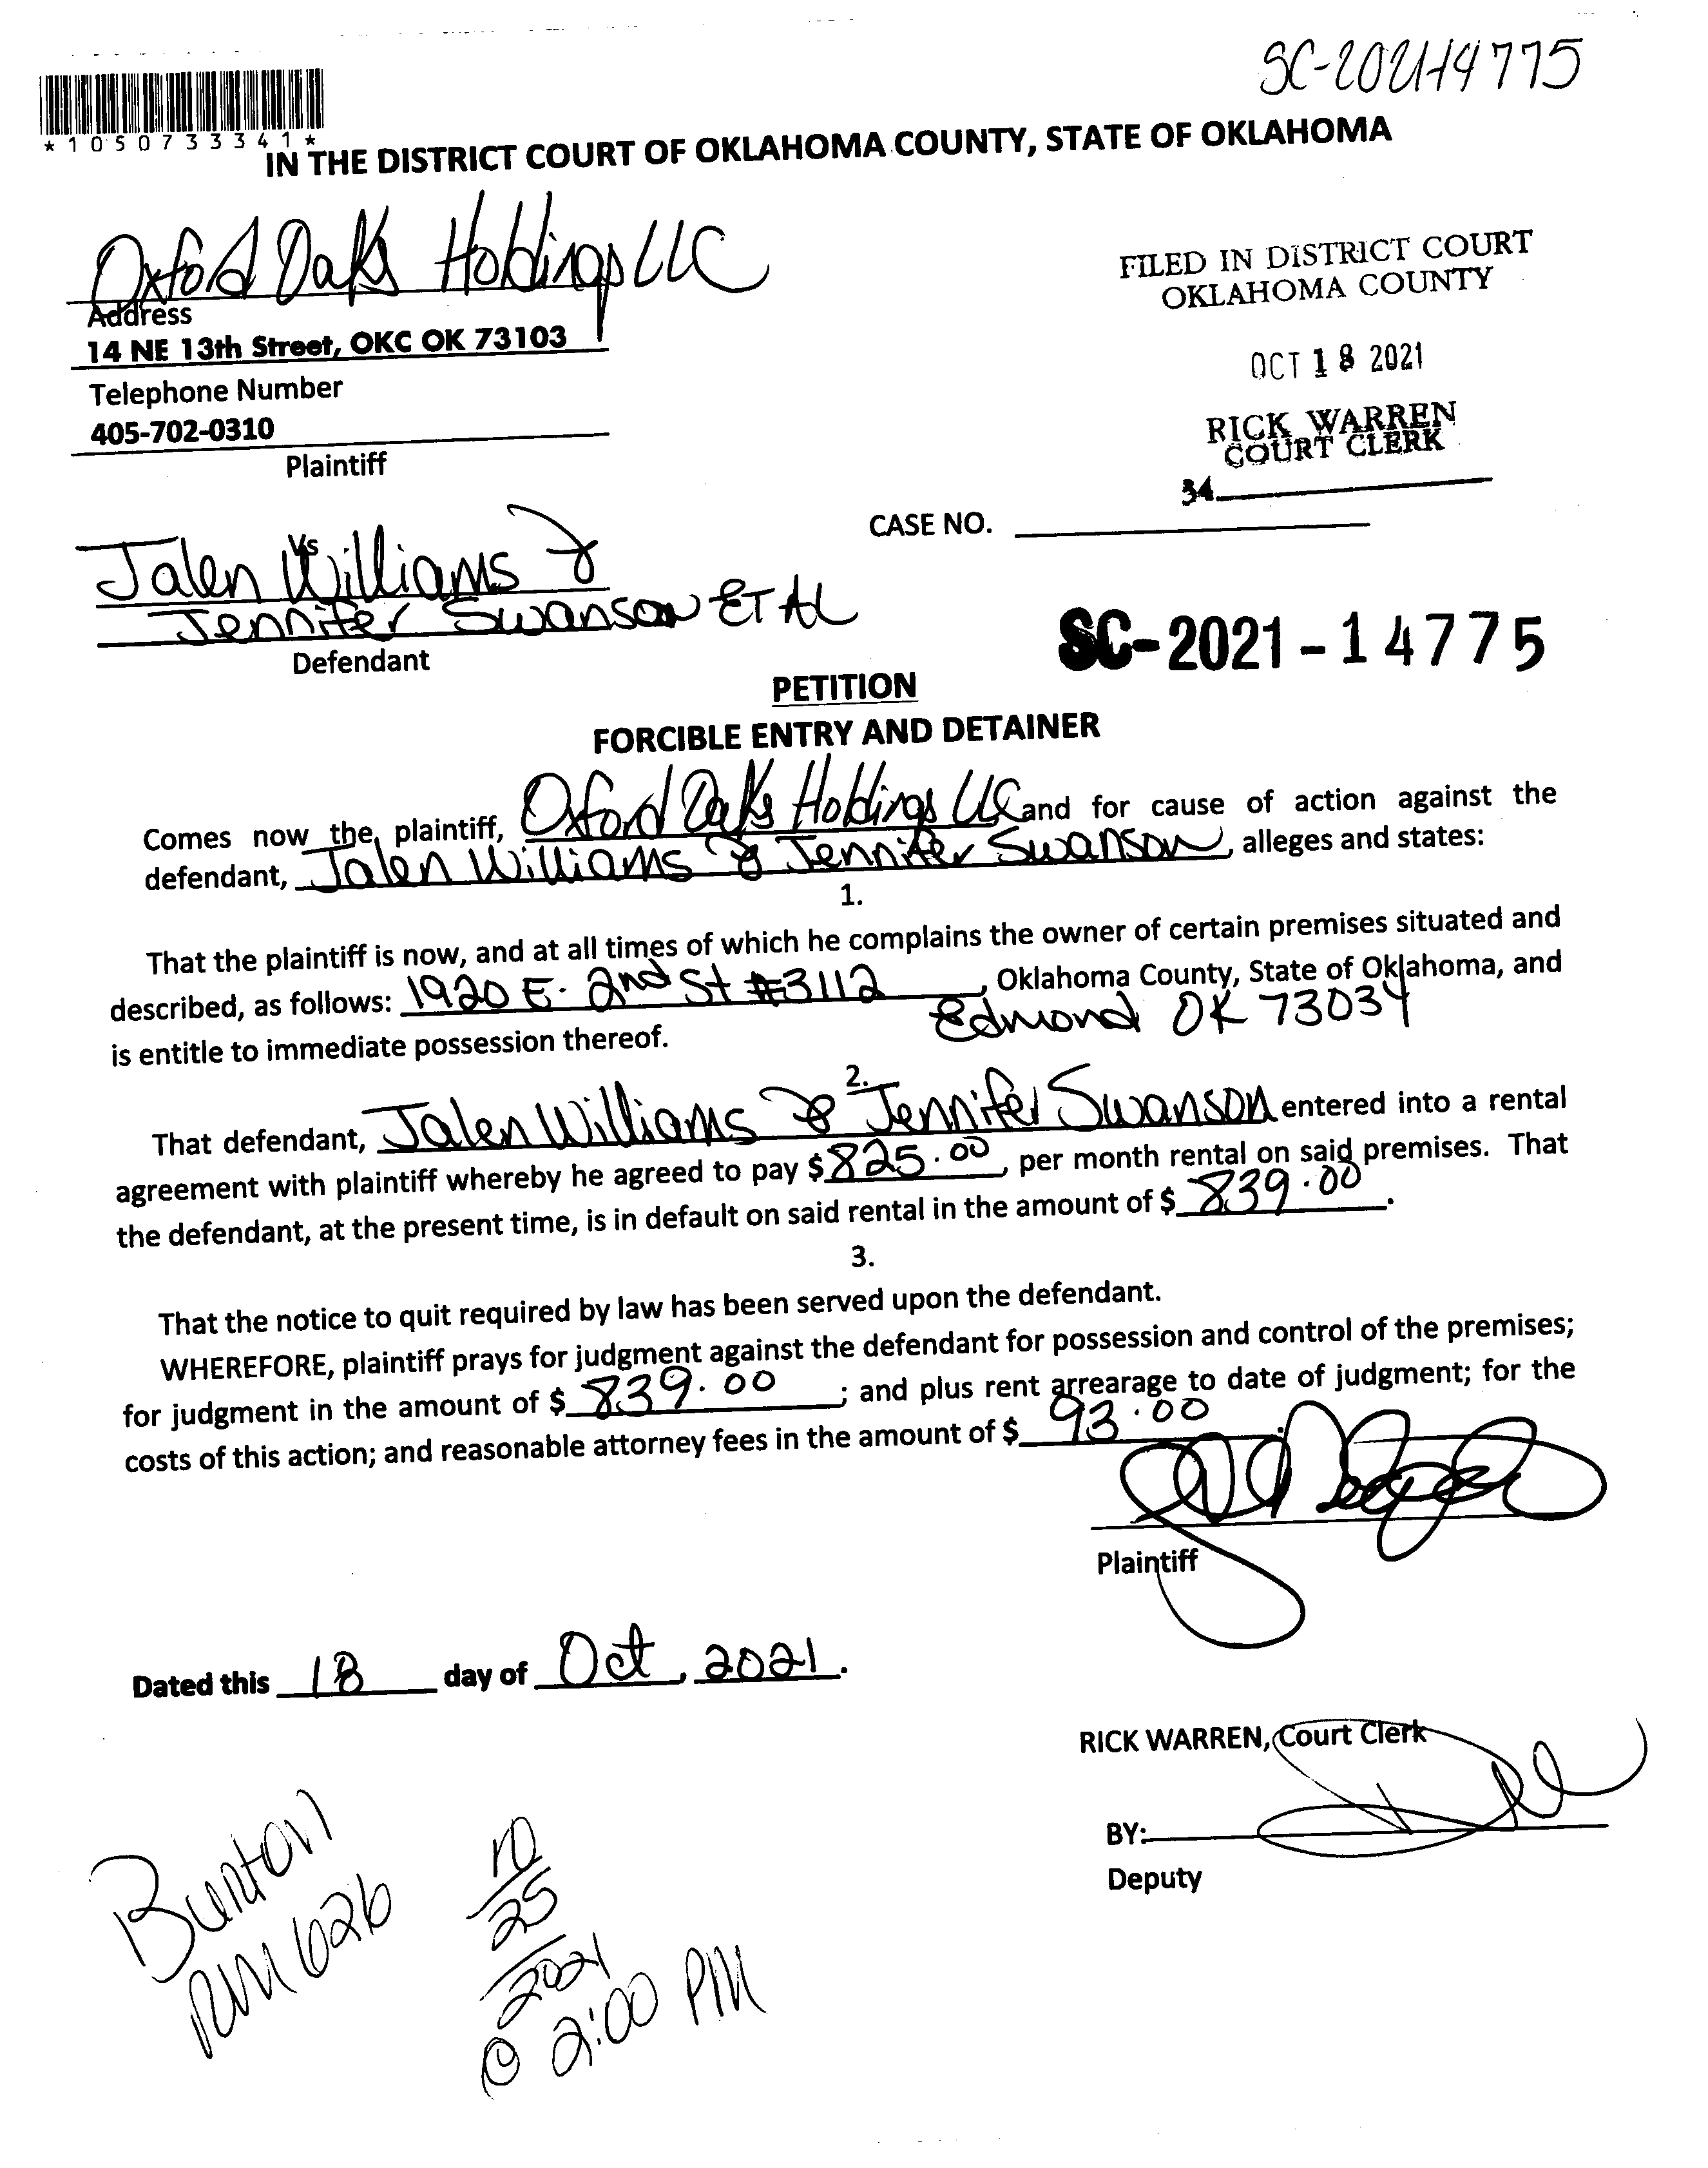 SC-2021-14775
*1050733341*
IN THE DISTRICT COURT OF OKLAHOMA COUNTY, STATE OF OKLAHOMA
Oxford Oaks Holdings LLC
Address
14 NE 13th Street, OKC OK 73103
Telephone Number
405-702-0310
Plaintiff
FILED IN DISTRICT COURT
OKLAHOMA COUNTY
OCT 18 2021
RICK WARREN
COURT CLERK
34
CASE NO.
Vs
Jalen Williams &
Jennifer Swanson ET AL
Defendant
SC-2021-14775
PETITION
FORCIBLE ENTRY AND DETAINER
Comes now the plaintiff, Oxford Oaks Holdings LLC and for cause of action against the
defendant, Jalen Williams & Jennifer Swanson, alleges and states:
1.
That the plaintiff is now, and at all times of which he complains the owner of certain premises situated and
described, as follows: 1920 E. 2nd St #3112, Oklahoma County, State of Oklahoma, and
Edmond OK 73034
is entitle to immediate possession thereof.
2.
That defendant, Jalen Williams & Jennifer Swanson entered into a rental
agreement with plaintiff whereby he agreed to pay $825.00, per month rental on said premises. That
the defendant, at the present time, is in default on said rental in the amount of $ 839.00.
3.
That the notice to quit required by law has been served upon the defendant.
WHEREFORE, plaintiff prays for judgment against the defendant for possession and control of the premises;
for judgment in the amount of $ 839.00; and plus rent arrearage to date of judgment; for the
costs of this action; and reasonable attorney fees in the amount of $ 93.00.
Plaintiff
Dated this 18 day of Oct, 2021.
RICK WARREN, Court Clerk
BY:
Deputy
Burton
RM 626
10
25
2021
@ 2:00 PM